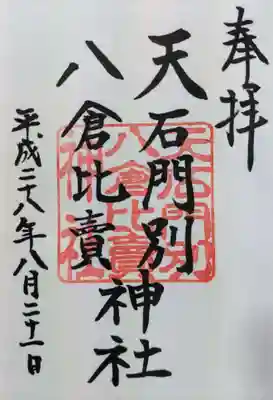 奉拝
天石門別
八倉比賣神社
平成二十八年八月二十一日